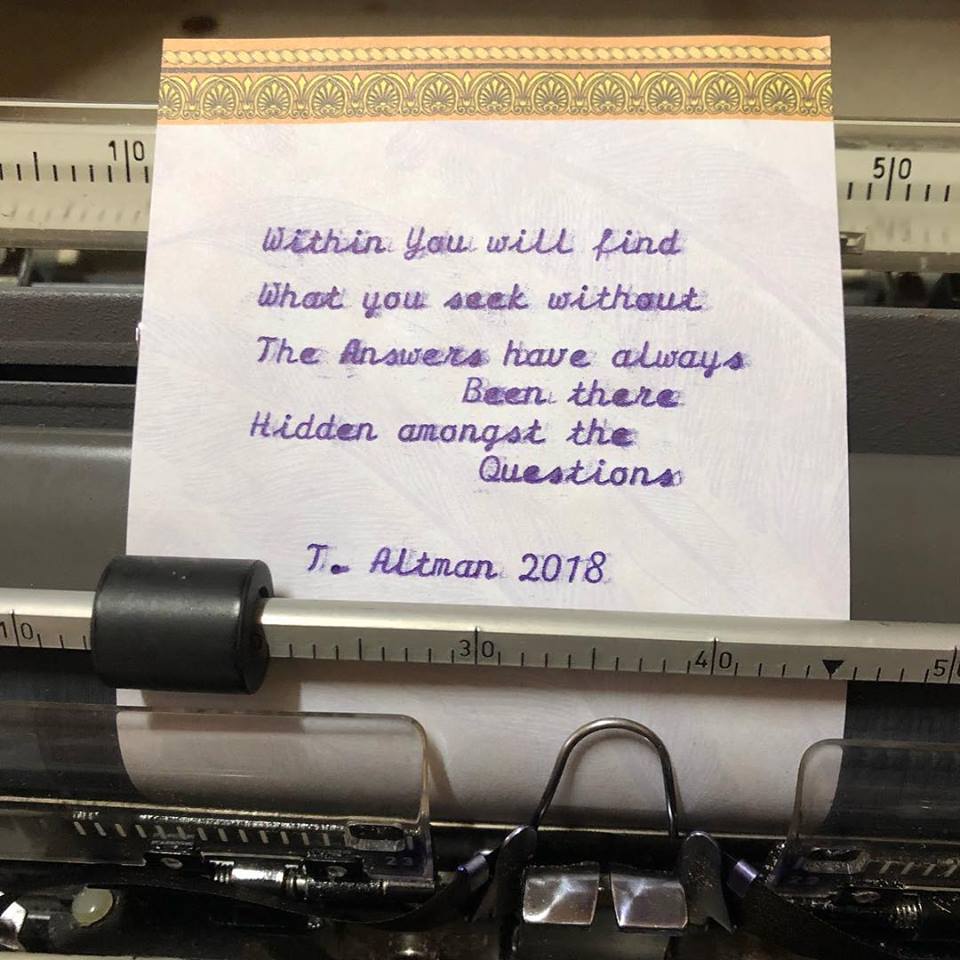 10
50
Within You will find
What you seek without
The Answers have always
Been there
Hidden amongst the
Questions
T. Altman 2018
10 30 40 5
23